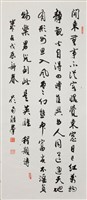 閒来無事不從容睡覺東窗日已紅萬物
靜觀皆自得四時佳興与人同道通天地
有形外思入風雲變態中富貴不淫貧
賤樂男兒到此是豪雄程顥詩